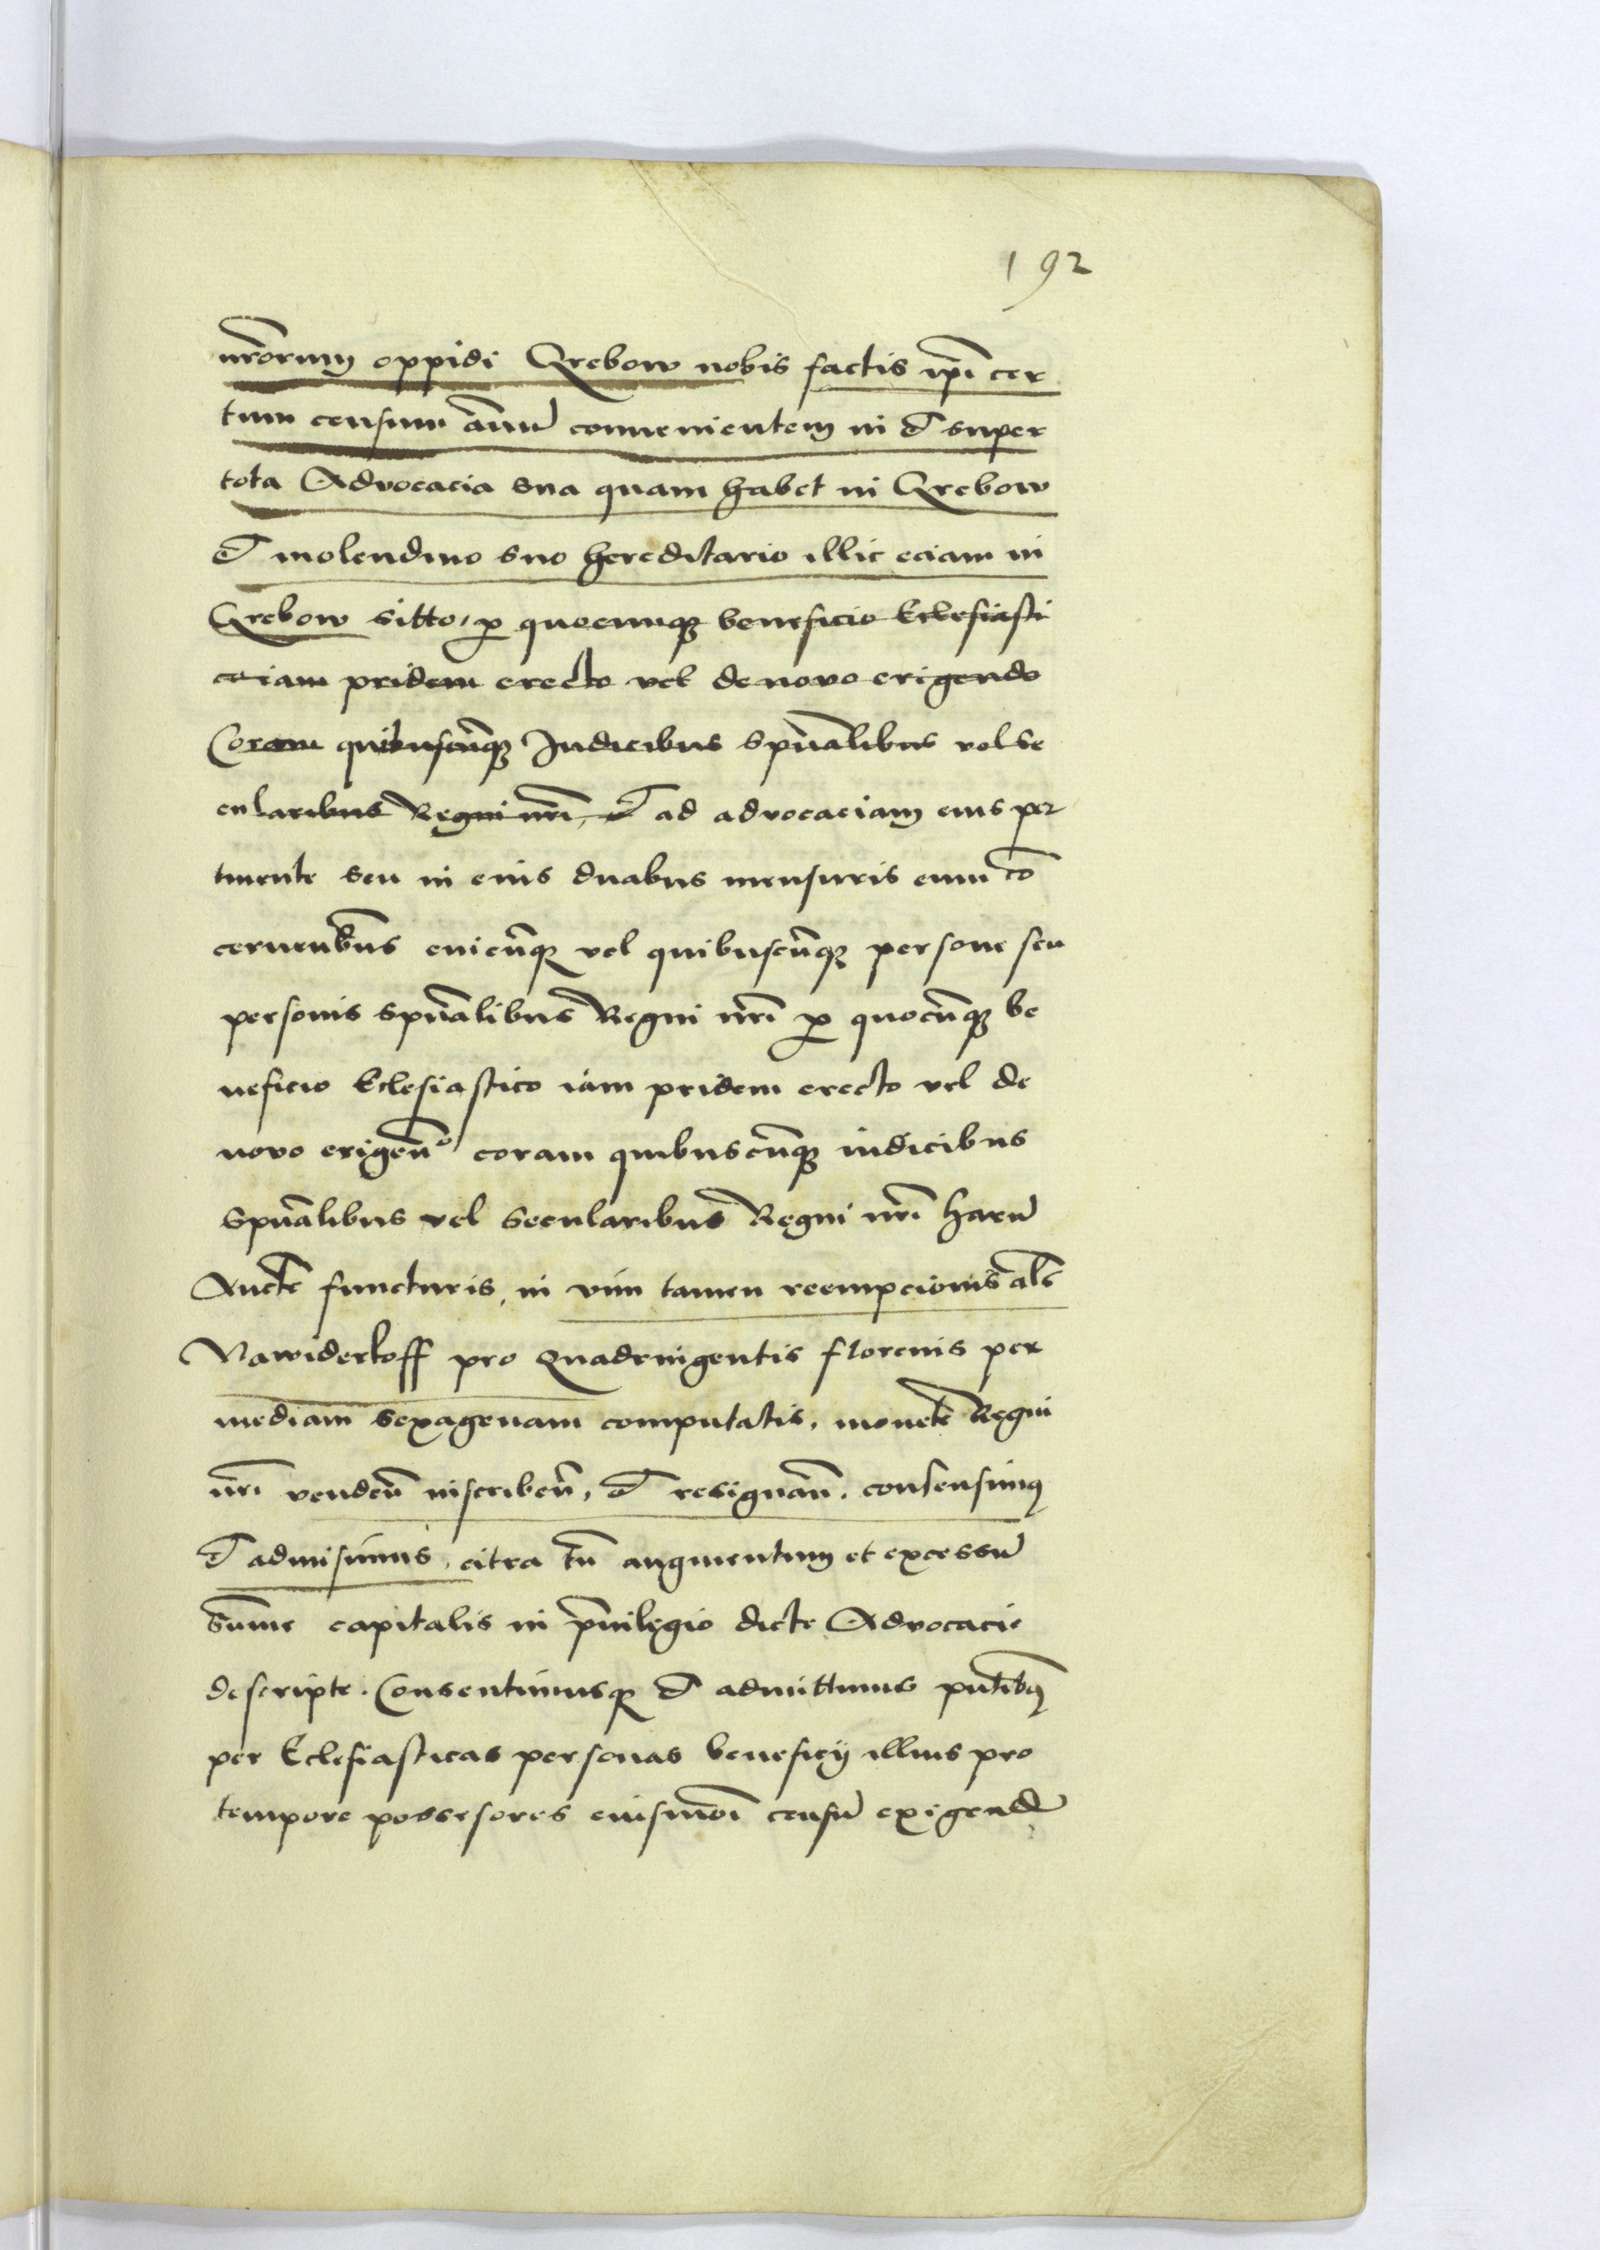 192
nr̃orum oppidi Grebow nobis factis ip̃i cer
tum censum annuũ convenientem in et super
tota Advocacia sua quam habet in Grebow
et molendino suo hereditario illic eciam in
Grebow sitto, p quocunq beneficio Eclesiasti
co iam pridem erecto vel de novo erigendo
Coram quibuscũq Iudicibus spũalibus vel se
cularibus Regni nr̃i, et ad advocaciam eius per
tinente seu in eius duabus mensuris eum cõ
cernentibus cuicũq vel quibuscũq persone seu
personis spũalibus Regni nr̃i p quocũq be
neficio Eclesiastico iam pridem erecto vel de
novo erigeñº coram quibuscũq iudicibus
spũalibus vel secularibus Regni nr̃i harũ
Aucte functuris, in vim tamen reempcionis als
Nawiderkoff pro Quadringentis florenis per
mediam sexagenam computatis, monete Regni
nr̃i vendeñ inscribeñ, et resignañ. consensimq
et admisimus, citra tñ augmentum et excessũ
sum̃e capitalis in p̃vilegio dicte Advocacie
descripte. Consentimusq et admittimus pñtibq
per Eclesiasticas personas beneficij illius pro
tempore possesores eiusmõi censũ exigend